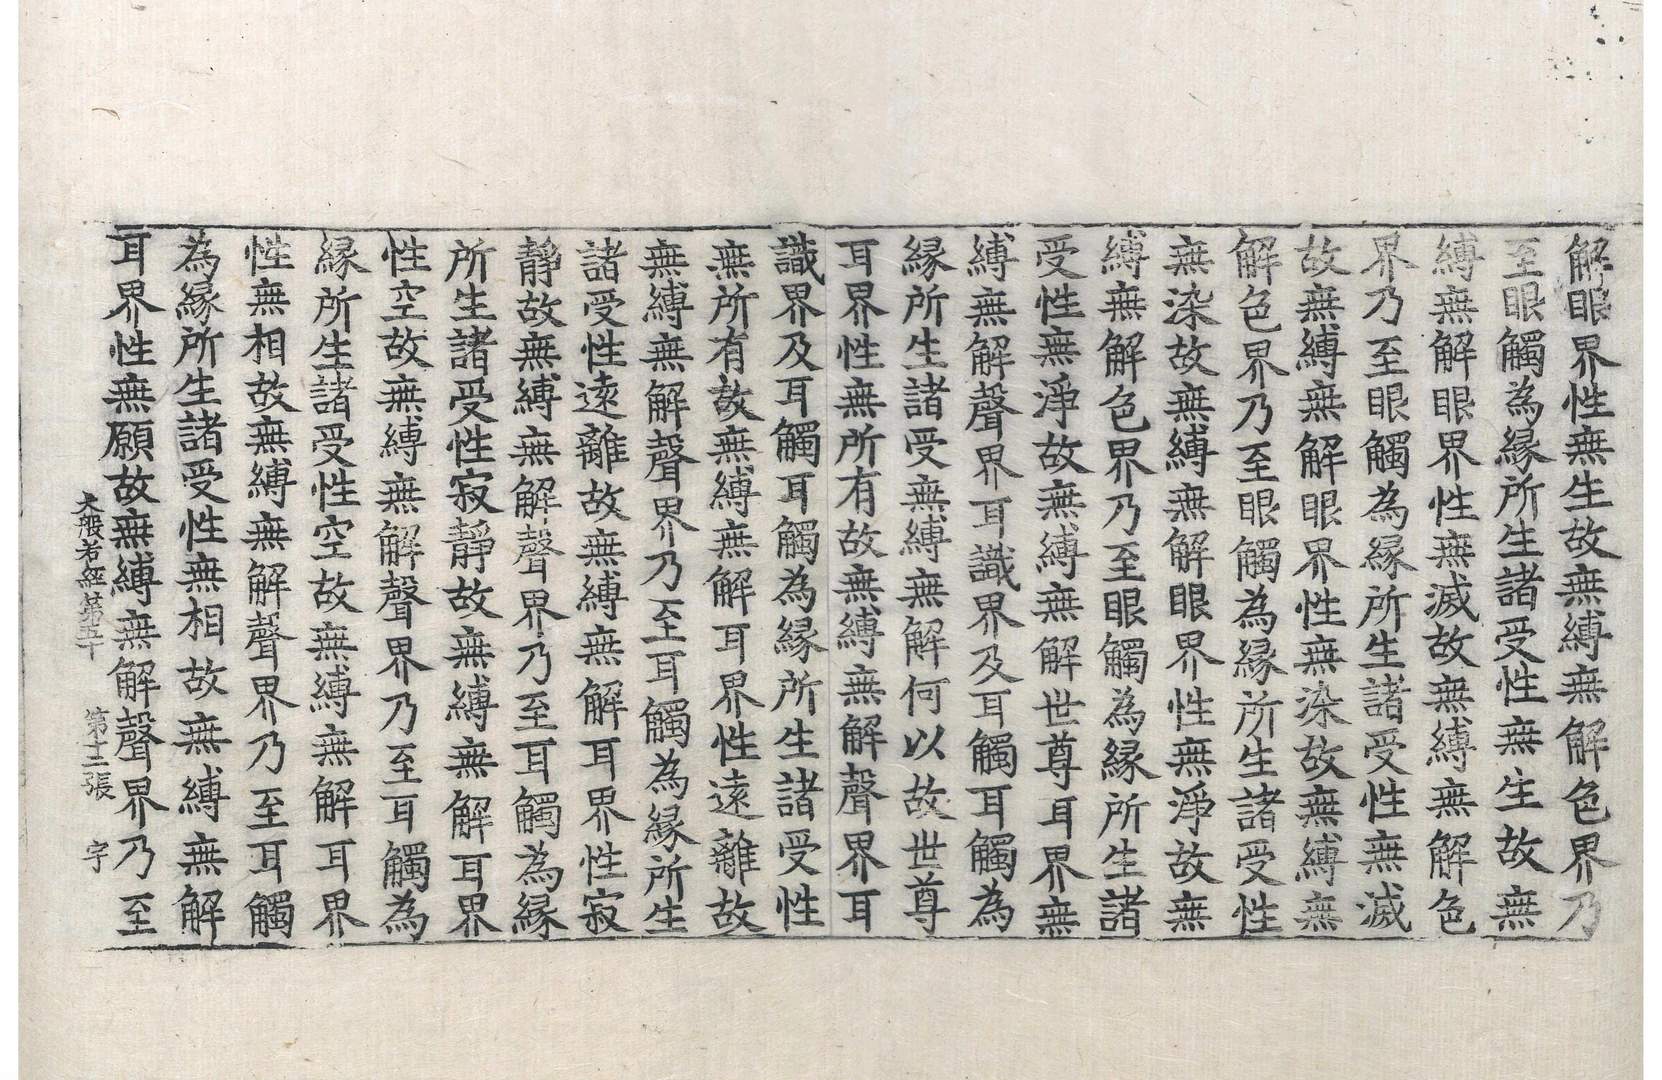 解眼界性無生故無縛無解色界乃
至眼觸為縁所生諸受性無生故無
縛無解眼界性無滅故無縛無解色
界乃至眼觸為縁所生諸受性無滅
故無縛無解眼界性無染故無縛無
解色界乃至眼觸為縁所生諸受性
無染故無縛無解眼界性無淨故無
縛無解色界乃至眼觸為縁所生諸
受性無淨故無縛無解世尊耳界無
縛無解聲界耳識界及耳觸耳觸為
縁所生諸受無縛無解何以故世尊
耳界性無所有故無縛無解聲界耳
識界及耳觸耳觸為縁所生諸受性
無所有故無縛無解耳界性遠離故
無縛無解聲界乃至耳觸為縁所生
諸受性遠離故無縛無解耳界性寂
靜故無縛無解聲界乃至耳觸為縁
所生諸受性寂靜故無縛無解耳界
性空故無縛無解聲界乃至耳觸為
縁所生諸受性空故無縛無解耳界
性無相故無縛無解聲界乃至耳觸
為縁所生諸受性無相故無縛無解
耳界性無願故無縛無解聲界乃至
大般若經第五十 第十二張 宇